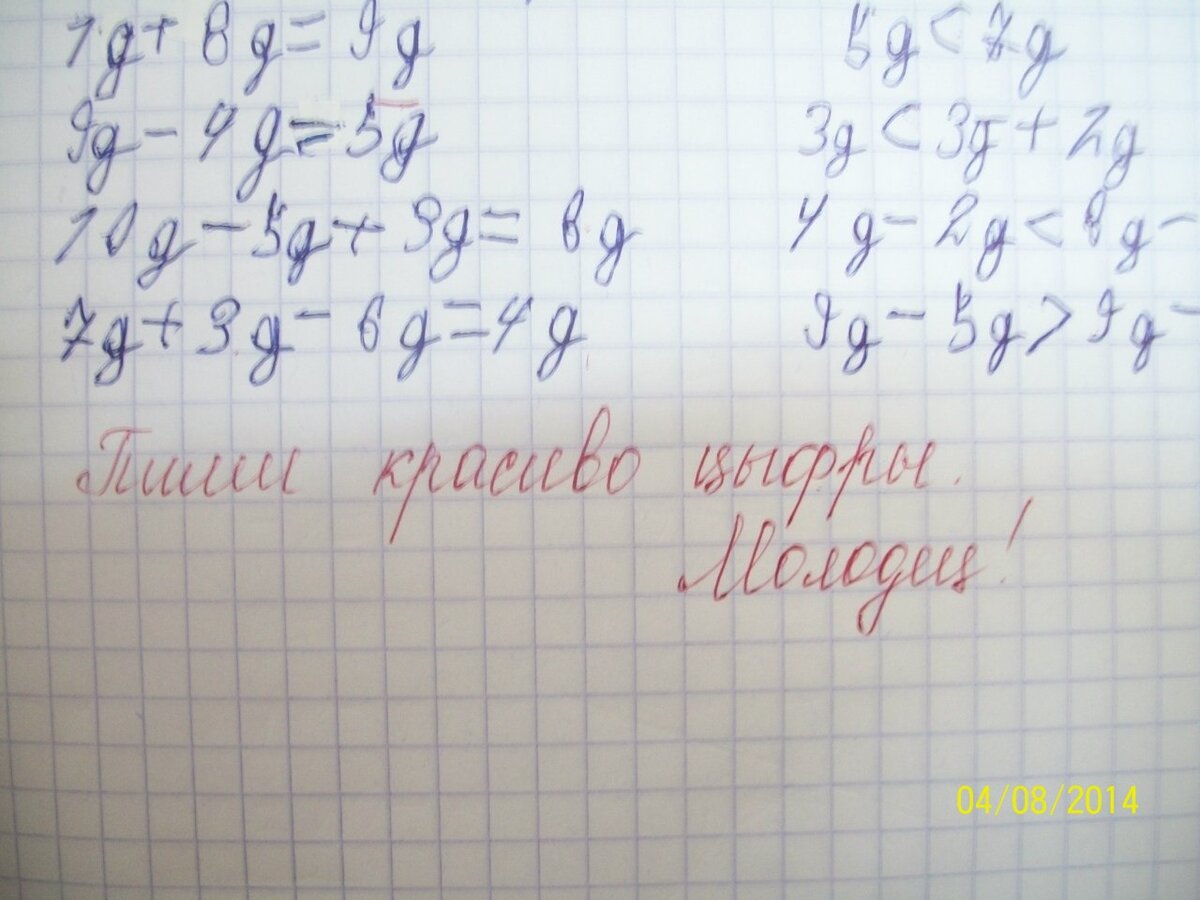 1д + 8д = 9д 5д < 7д
9д - 4д = 5д 3д < 3д + 2д
10д - 5д + 3д = 8д 4д - 2д < 8д -
7д + 3д - 6д = 4д 9д - 5д > 9д -
Пиши красиво цыфры.
Молодиц!
04/08/2014